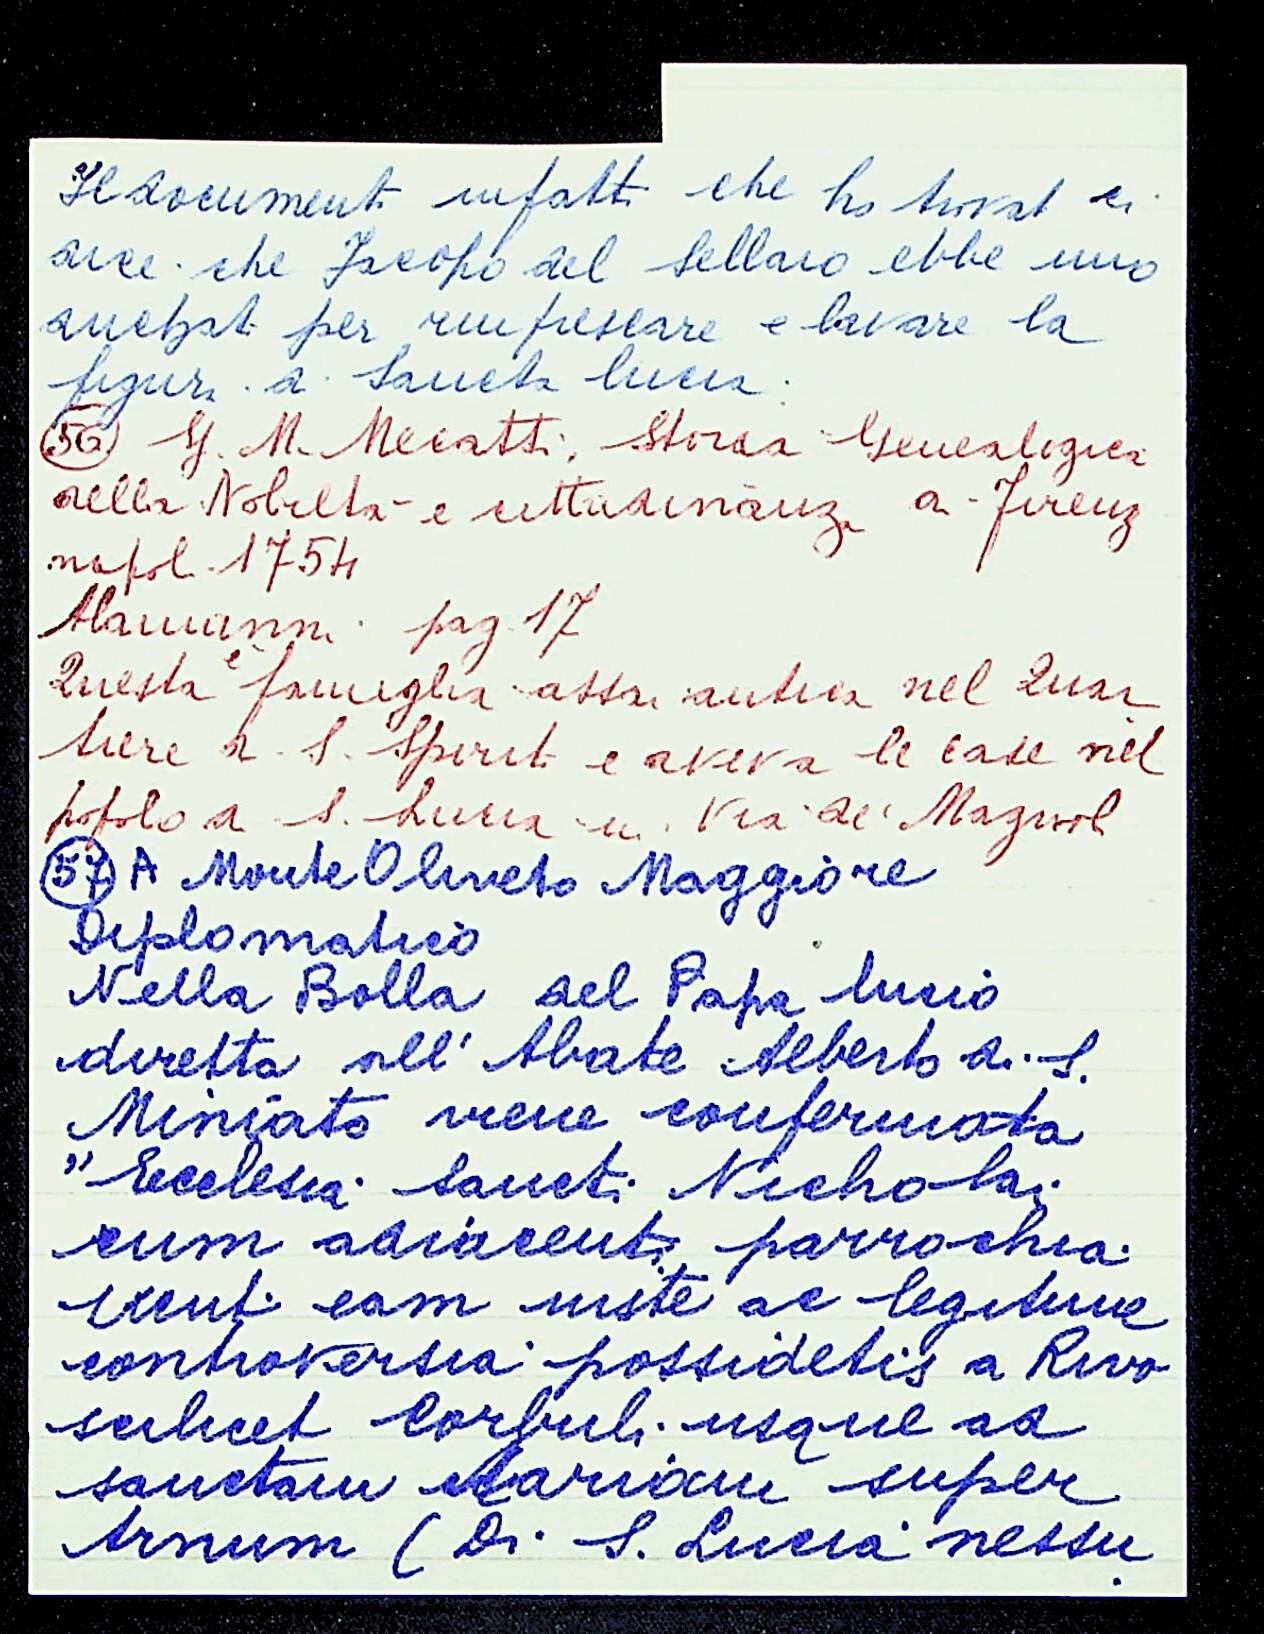 Il document infatti che ho trovat ci
dice che Jacopo del Sellaio ebbe uno
ducat per rinfrescare e lavare la
figura di Sancta Lucia.
(56) G. M. Mecatti, Storia Genealogica
della Nobilta e cittadinanza di Firenz
napol 1754
Alamanni pag. 17
Questa è famiglia assai antica nel Quar
tiere di S. Spirit e aveva le case nel
popolo di S. Lucia in Via de' Magnol
(57) A Monte Oliveto Maggiore
Diplomatico
Nella Bolla del Papa Lucio
diretta all' Abate Alberto di S.
Miniato viene confermata
"Ecclesia Sancti Nicholai
cum adiacenti parrochia
sicuti eam iuste ac legitime
controversia possidetis a Rivo
scilicet Corbuli usque ad
sanctam Mariam super
Arnum (Di S. Lucia nessu